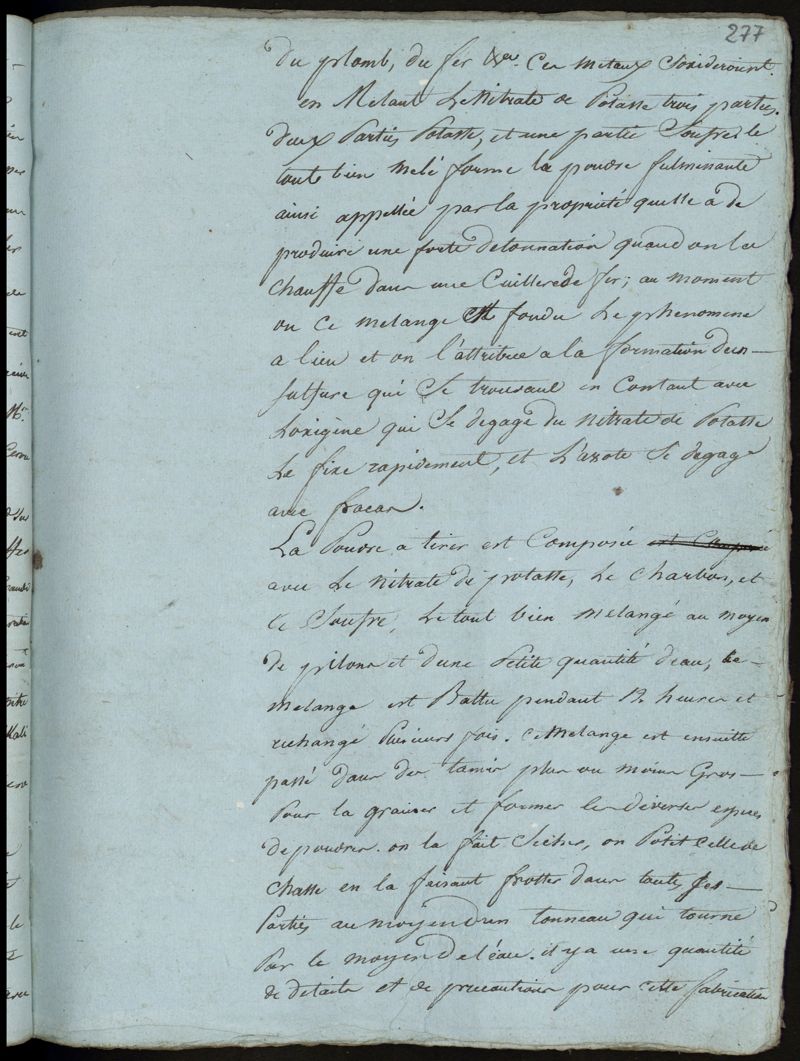 277
du plomb, du fer &ca. Ces metaux s'oxideroient.
en Melant Le Nitrate de Potasse trois parties,
deux Parties Potasse, et une partie Soufre, le
tout bien melé forme la poudre fulminante
ainsi appellée par la propriété quelle a de
produire une forte detonnation quand on la
chauffe dans une Cuillere de fer; au moment
ou ce melange est fondu Le phenomene
a lieu et on l'attribue a la formation d'un
sulfure qui se trouvant en Contact avec
L'oxigène qui se degage du nitrate de Potasse
Le fixe rapidement, et L'azote se degage
avec fracas.
La Poudre a tirer est Composée
avec Le nitrate de potasse, Le charbon, et
Le Soufre, Le tout bien melangé au moyen
de pilons et d'une Petite quantité d'eau, Le
melange est Battu pendant 12 heures et
rechangé Plusieurs fois. ce Melange est ensuitte
passé dans des tamis plus ou moins Gros
Pour la grainer et former les diverses especes
de poudres. on la fait Secher, on Polit celle de
Chasse en la faisant frotter dans toutes ses
Parties au moyen d'un tonneau qui tourne
Par le moyen de l'éau. il y a une quantité
de details et de precautions pour cette fabrication